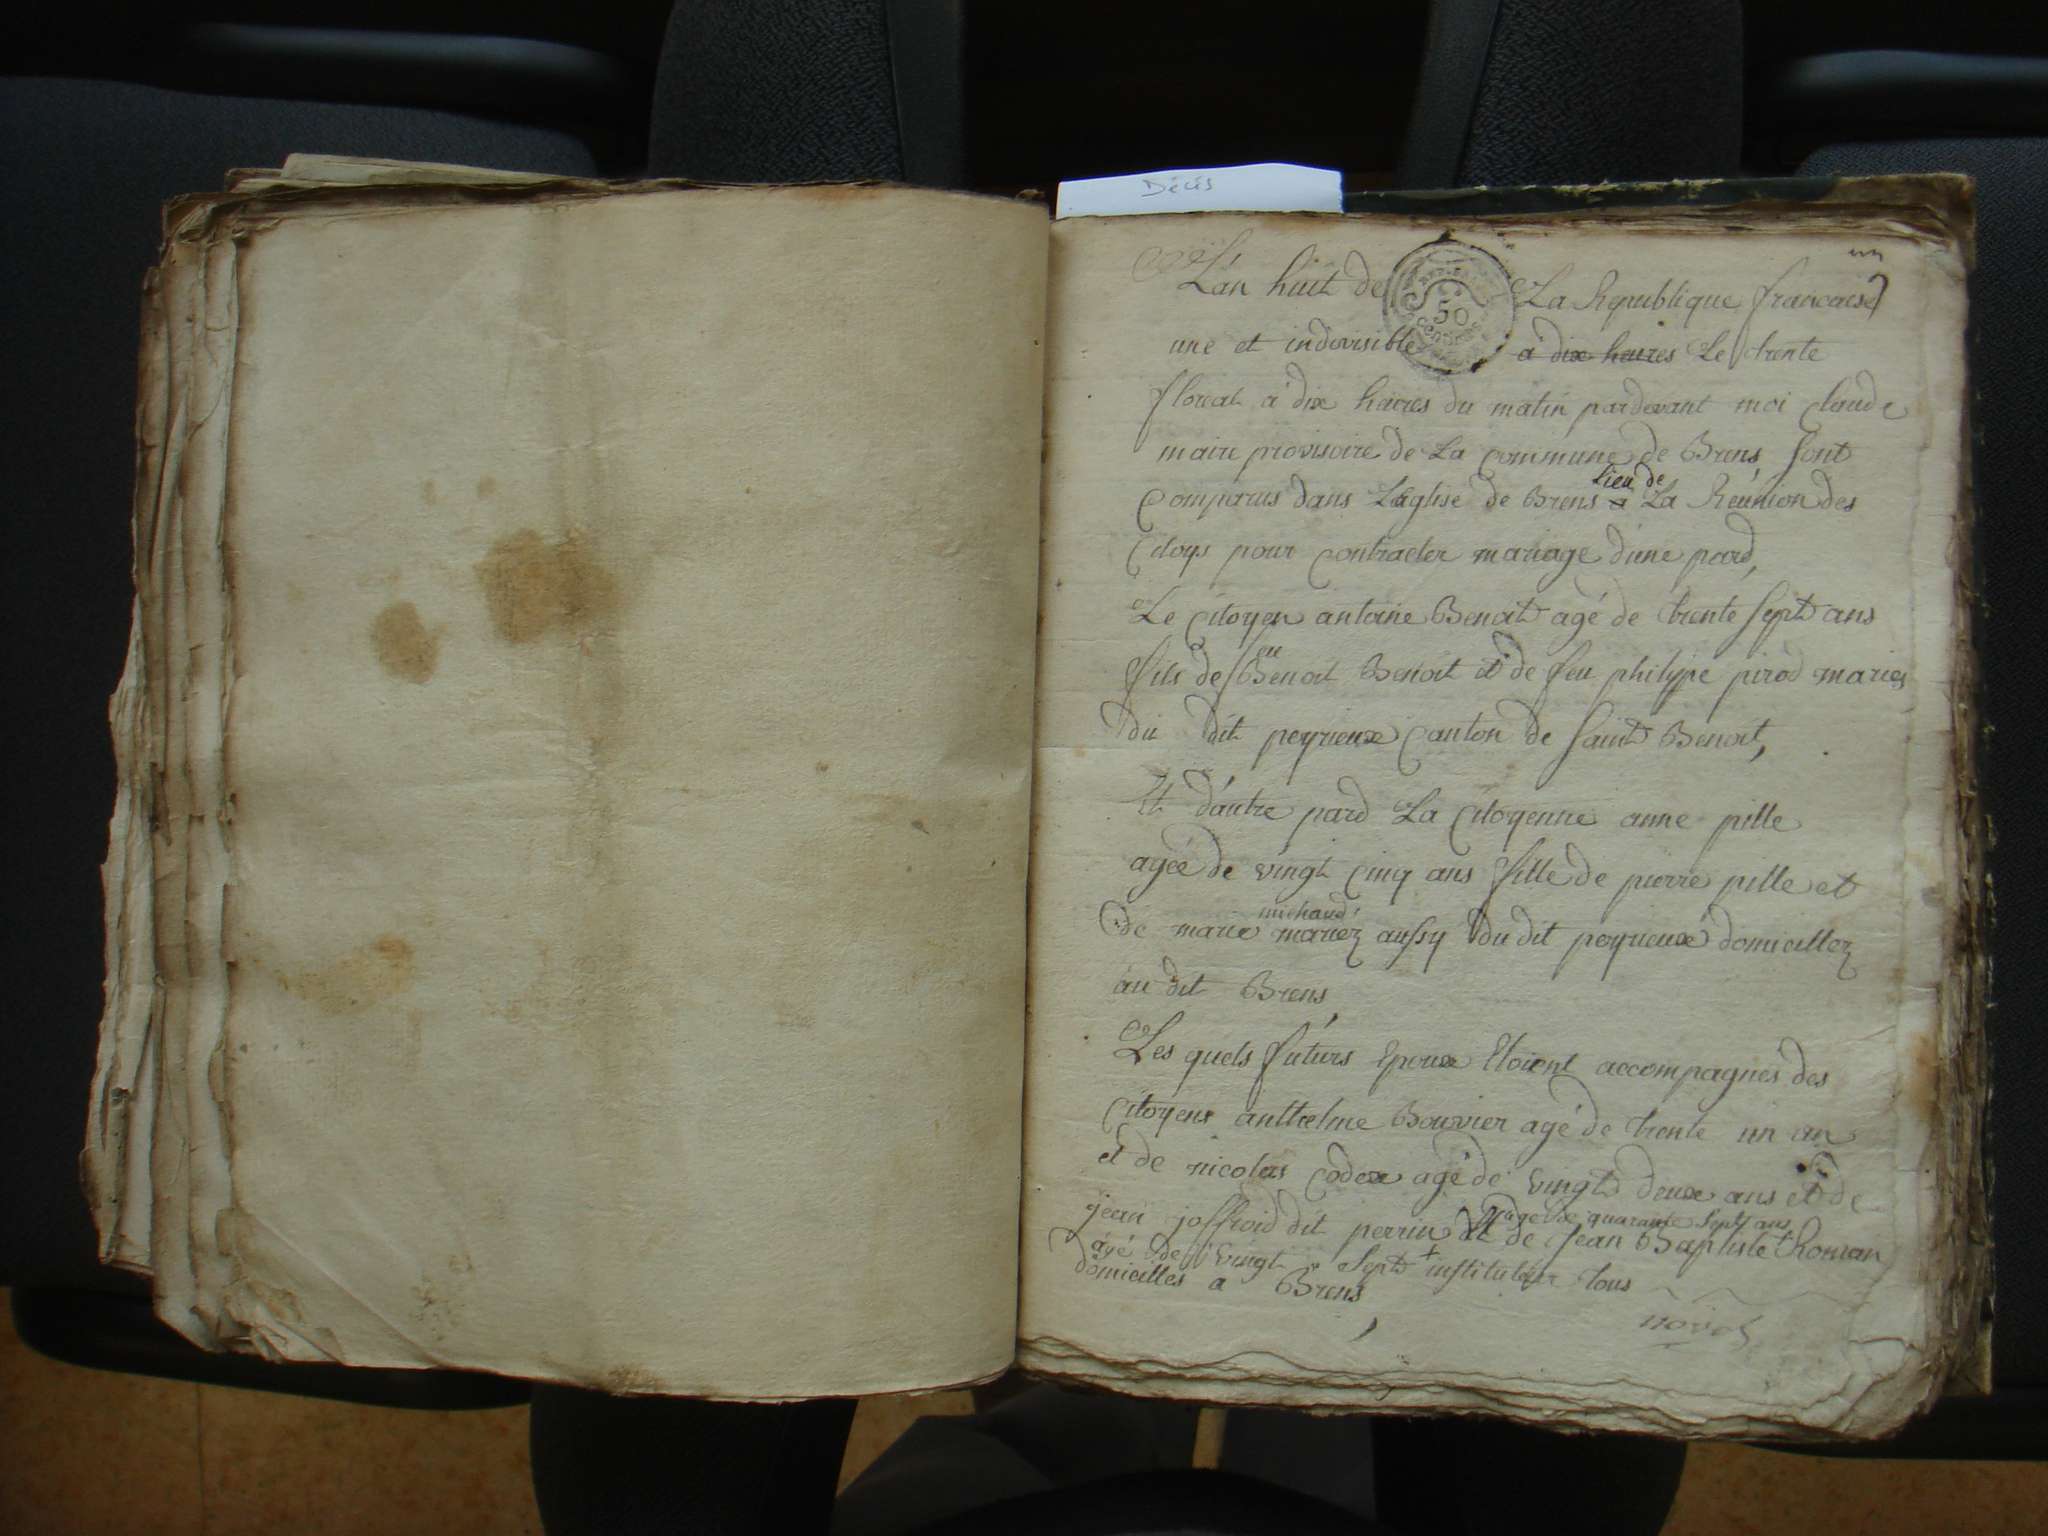 Décés
un
L'an huit de La Republique francaise
50
une et indivisible à dix heures Le trente
floreal à dix heures du matin pardevant moi claude
maire provisoire de La commune de Brens sont
comparus dans L'eglise de Brens a lieu de La Reunion des
Citoys pour contracter mariage d'une pard,
Le Citoyen antoine Benoit agé de trente sept ans
fils de feu Benoit Benoit et de feu philype pirod mariés
du dit peyrieux canton de saint Benoit,
Et d'autre pard La Citoyenne anne pille
agée de vingt cinq ans fille de pierre pille et
de marie michaud mariez aussy du dit peyrieux domicillez
au dit Brens,
Les quels futurs Epoux Etoient accompagnés des
Citoyens anthelme Bouvier agé de trente un an
et de nicolas Codex agé de vingt deux ans et de
jean joffroid dit perrin agé de quarante sept ans et de jean Baptiste Roman
agé de vingt sept + instituteur tous
domicilles a Brens,